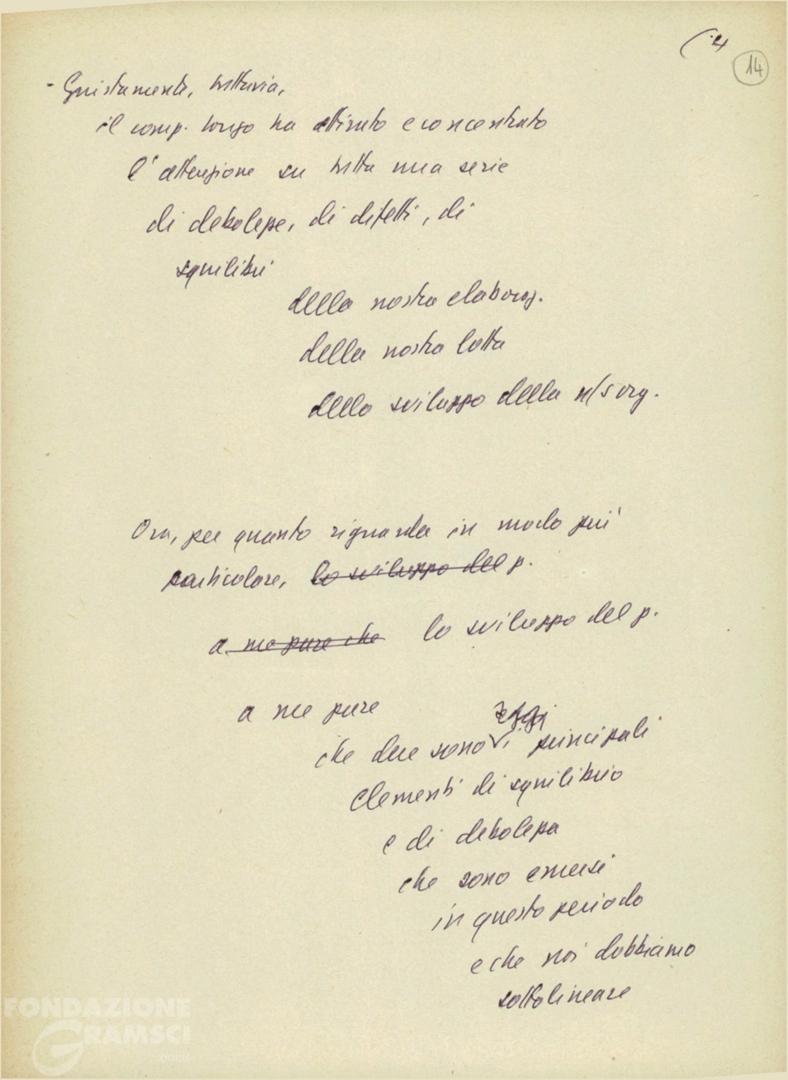 14
- Giustamente, tuttavia,
il comp. Longo ha attirato e concentrato
l'attenzione su tutta una serie
di debolezze, di difetti, di
squilibri
della nostra elaboraz.
della nostra lotta
dello sviluppo della n/s org.
Ora, per quanto riguarda in modo più
particolare, lo sviluppo del p.
a me pare che lo sviluppo del p.
a me pare
oggi
che due sono i principali
elementi di squilibrio
e di debolezza
che sono emersi
in questo periodo
e che noi dobbiamo
sottolineare
FONDAZIONE
GRAMSCI